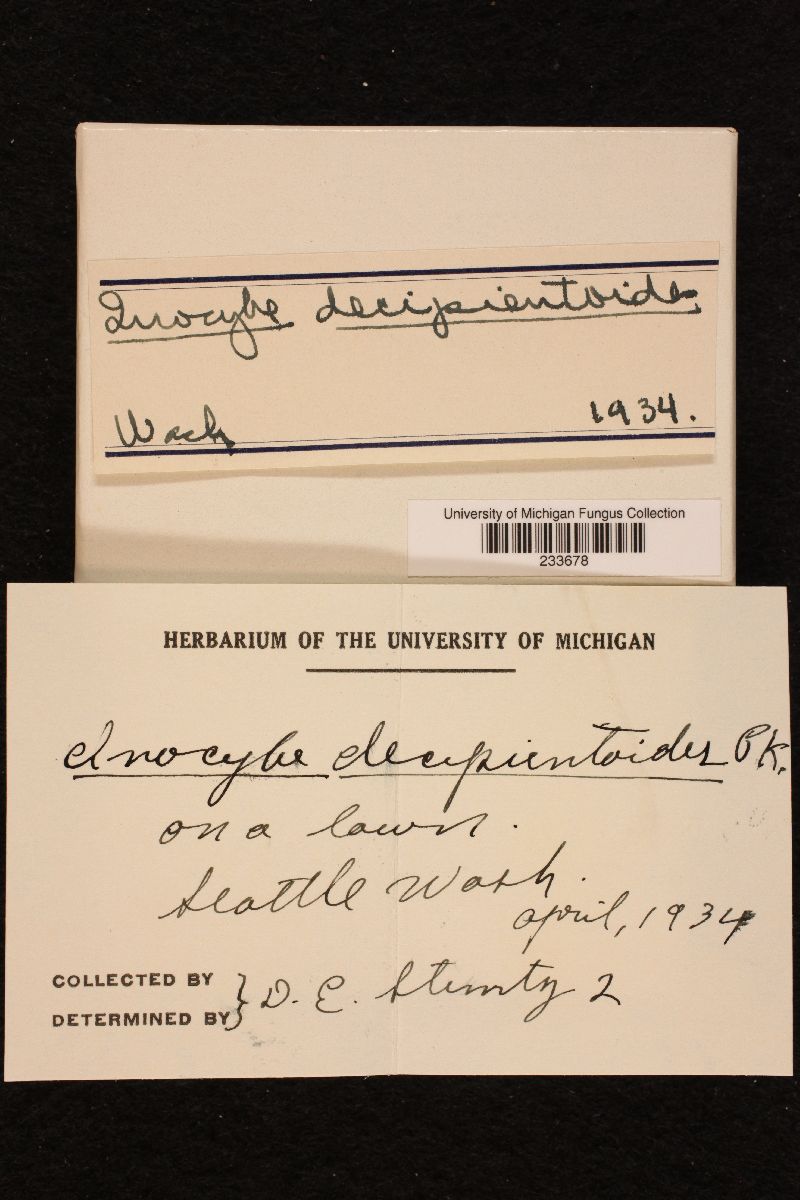 Inocybe decipientoides
Wash 1934.
University of Michigan Fungus Collection
233678
HERBARIUM OF THE UNIVERSITY OF MICHIGAN
Inocybe decipientoides Pk.
on a lawn.
Seattle Wash.
April, 1934
COLLECTED BY
DETERMINED BY } D. E. Stuntz 2